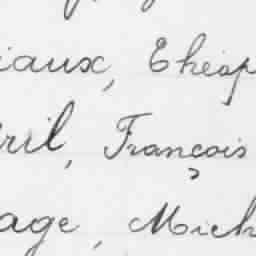 iaux, Théop
ril, François
age, Mich